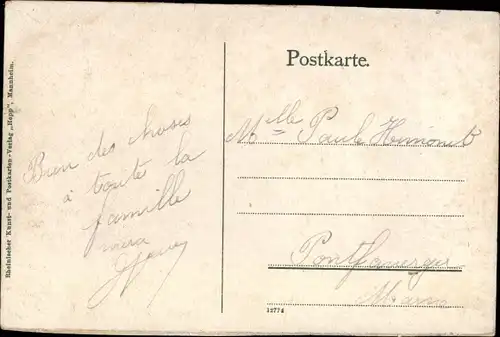 Postkarte.
Rheinischer Kunst- und Postkarten-Verlag „Hepp", Mannheim.
Bien des choses
à toute la
famille
Melle Paule Hemonet
Pontfaverger
Marne
12774